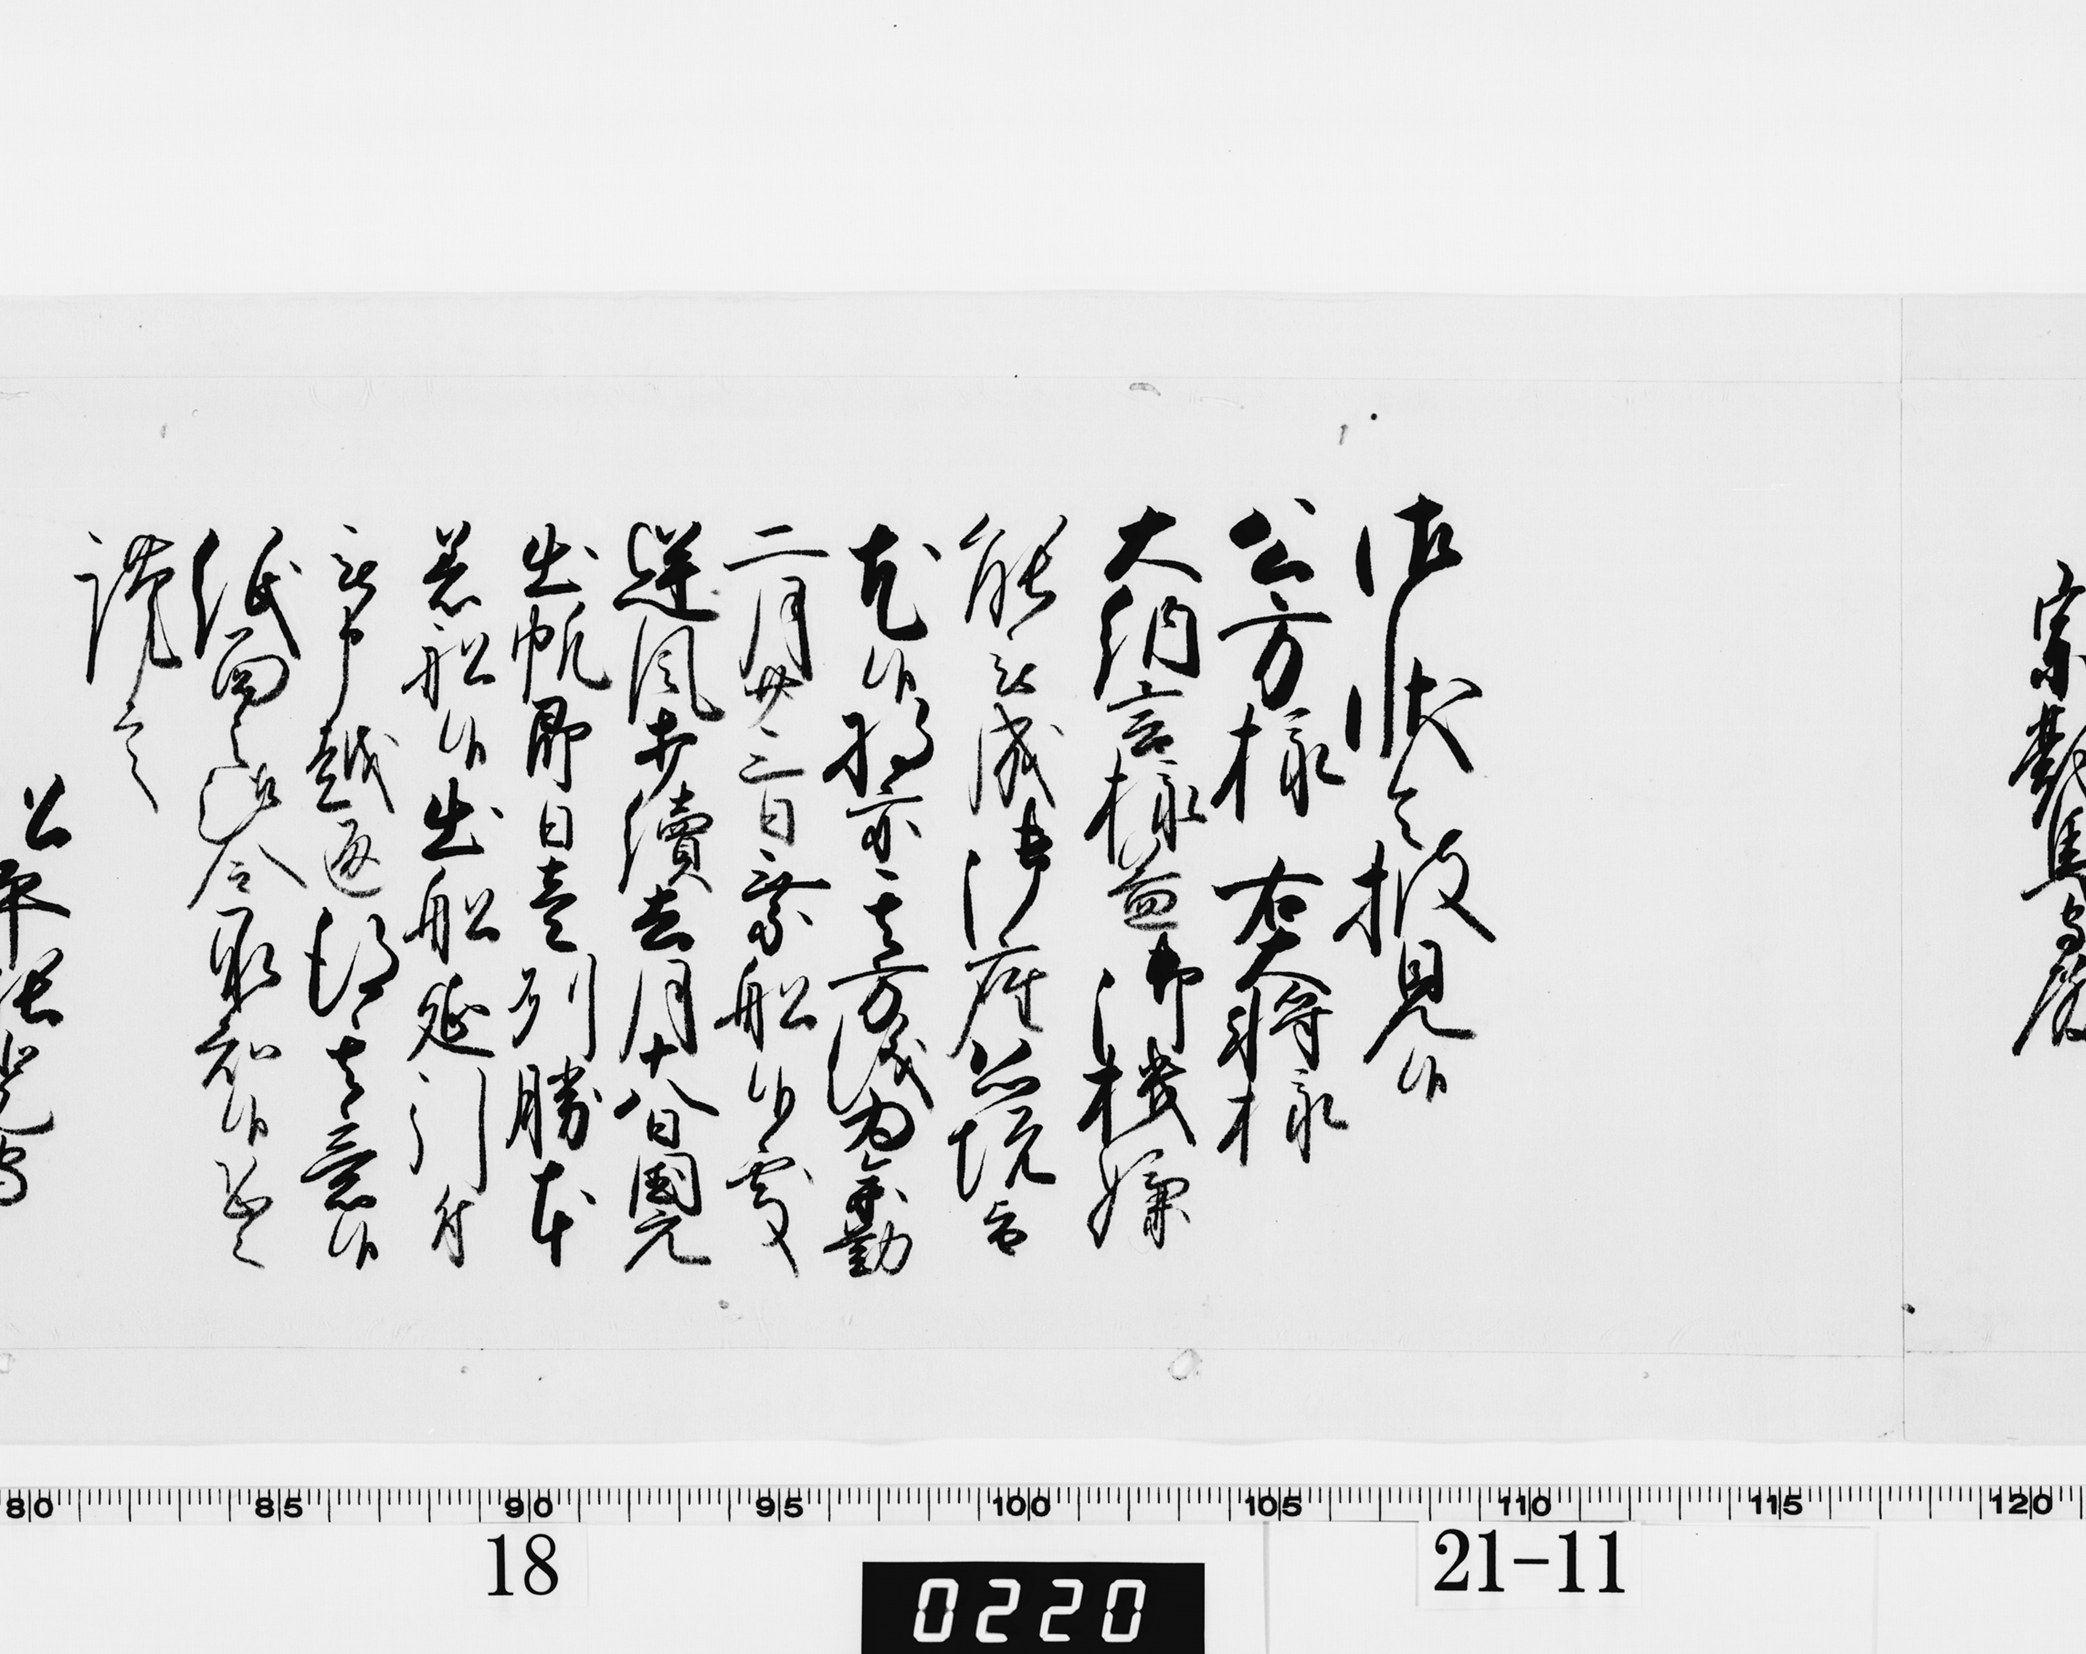 宗對馬守殿
御状令披見候
公方様右大将様
大納言様益御機嫌
能被成御座恐悦旨
尤候将亦其方儀為参勤
二月廿三日乗船候處
逆風打續去月十八日國元
出帆即日壹列勝本
着船候出船延引付
被申越返翰其意候
紙面之趣令承知候恐々
謹言
松平
80 85 90 95 100 105 110 115 120
18
0220
21-11